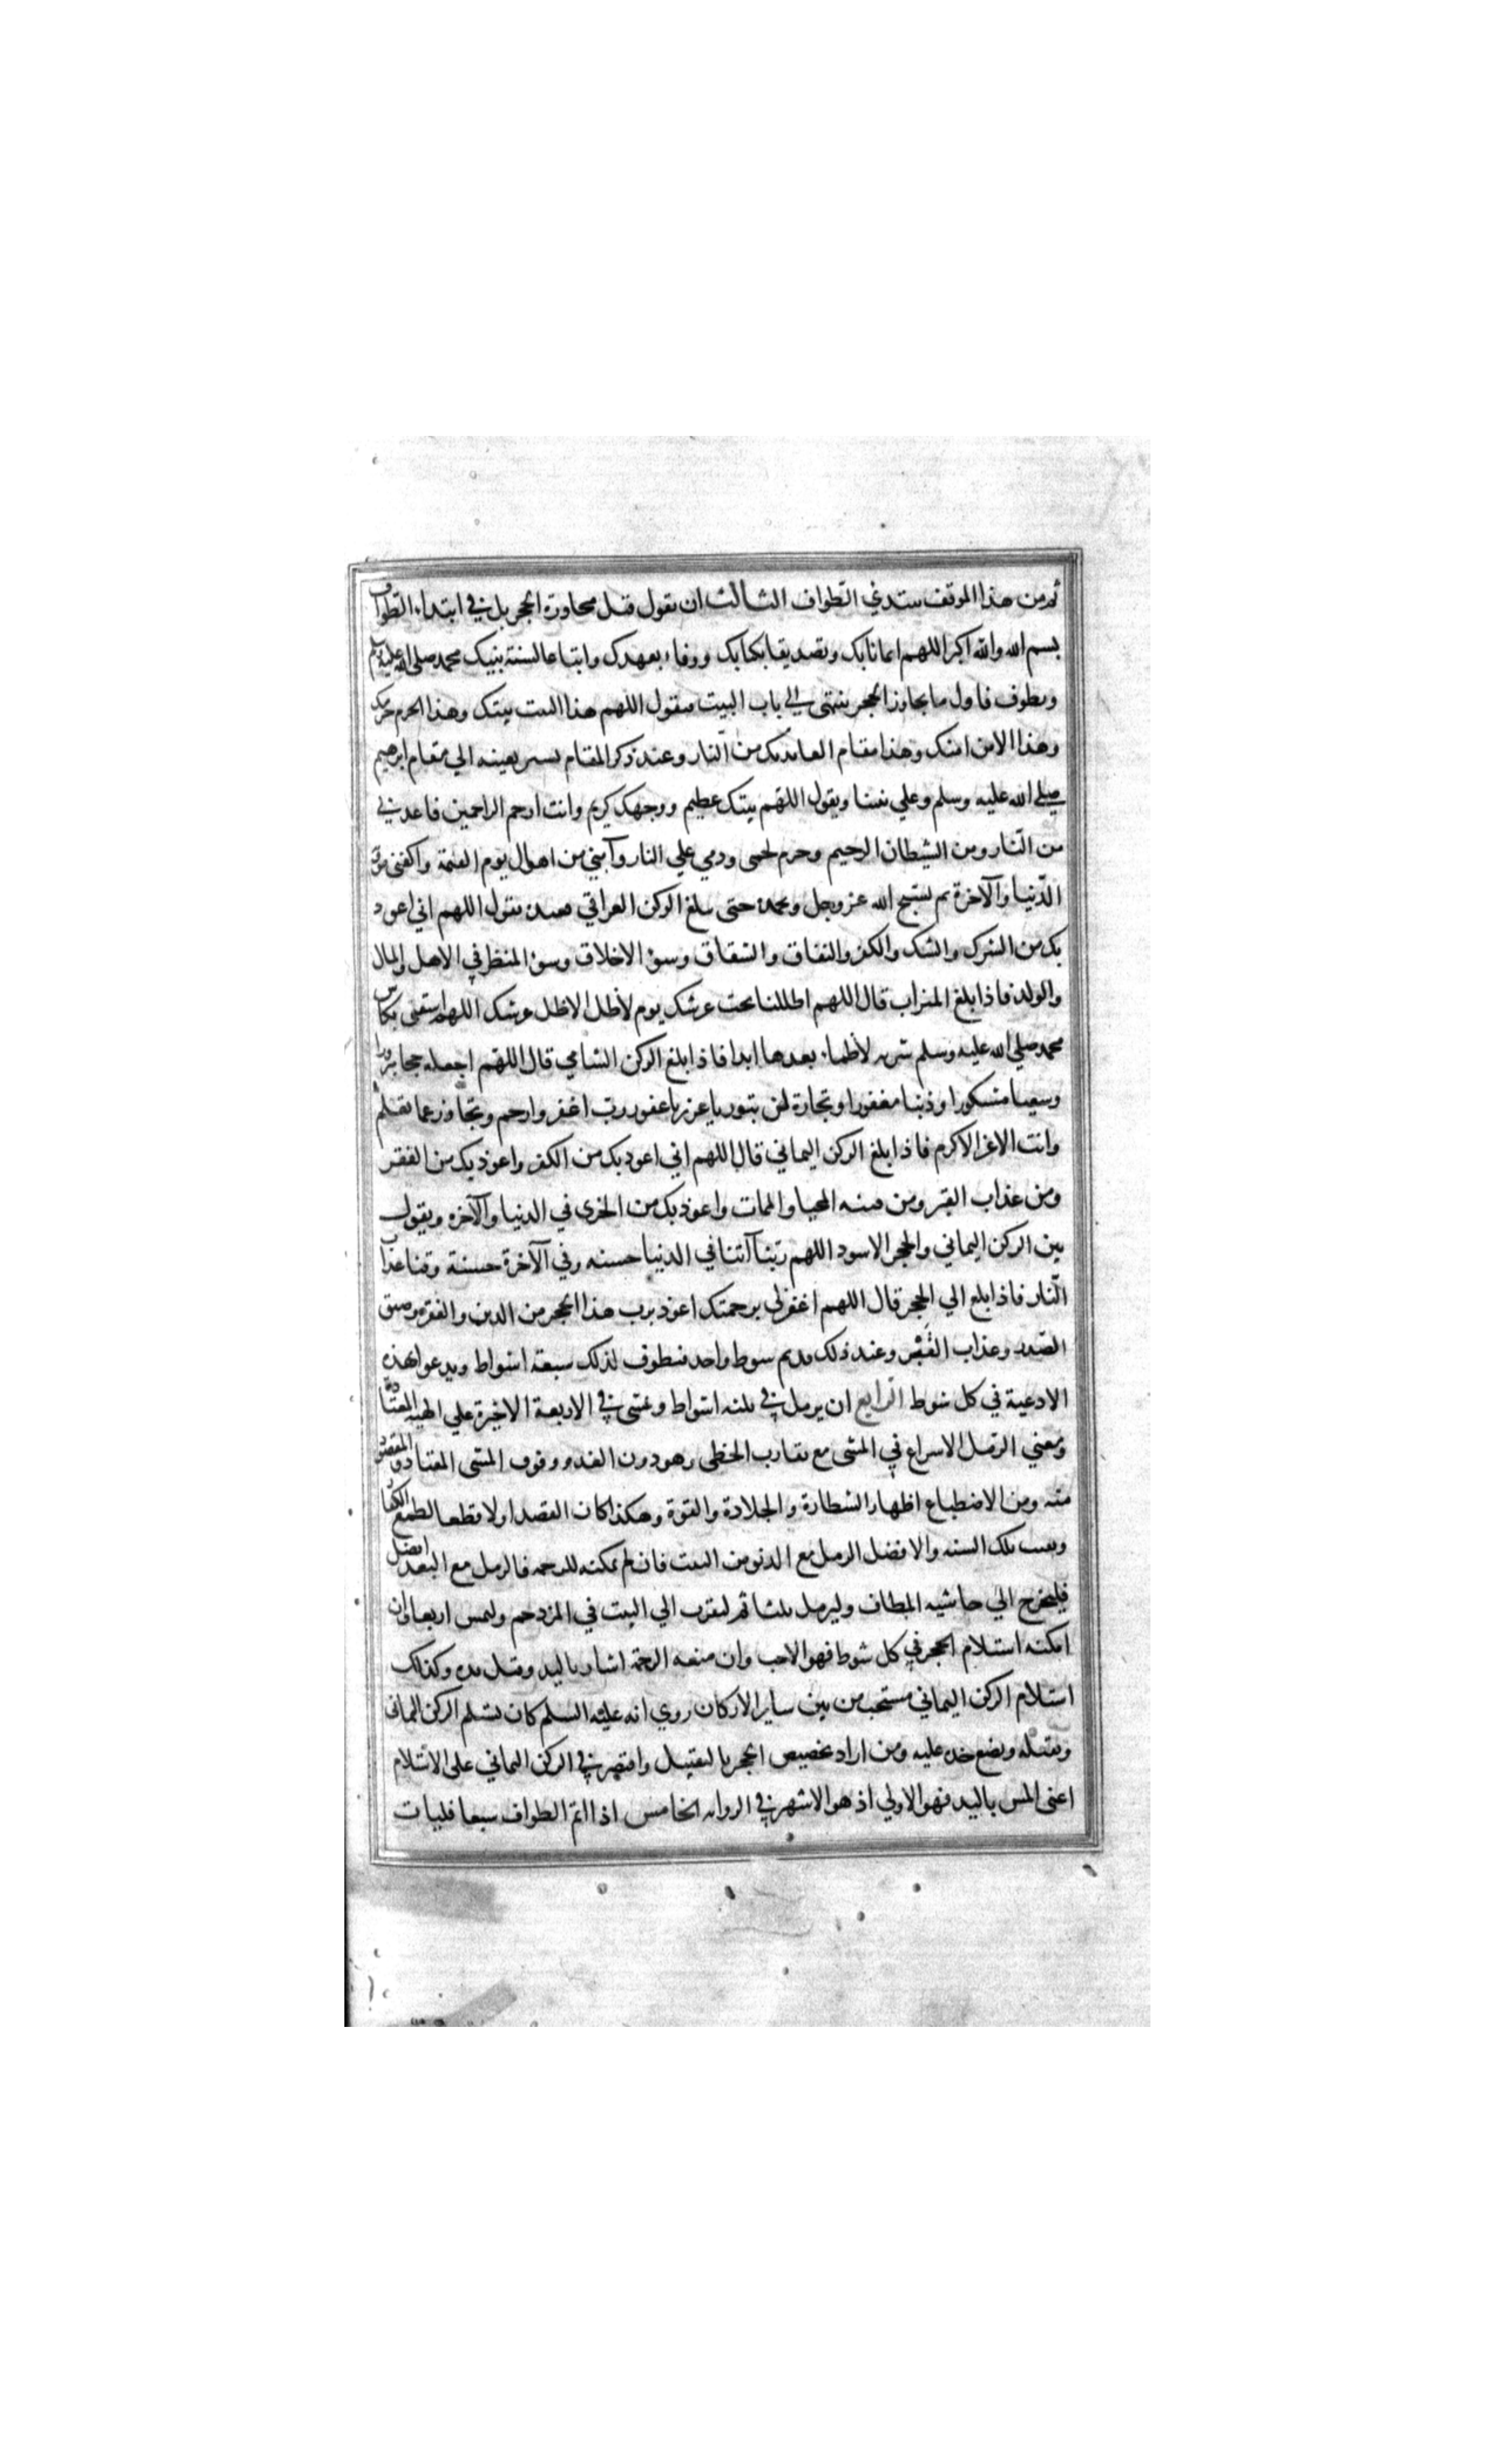 ثم من هذا الموقف يبتدئ الطواف الثالث ان يقول قبل مجاوزة الحجر بل في ابتداء الطواف
بسم الله والله اكبر اللهم ايمانا بك وتصديقا بكتابك ووفاء بعهدك واتباعا لسنة نبيك محمد صلى الله عليه وسلم
ويطوف فاول ما يجاوز الحجر ينتهي الي باب البيت فيقول اللهم هذا البيت بيتك وهذا الحرم حرمك
وهذا الامن امنك وهذا مقام العائذ بك من النار وعند ذكر المقام يشير بعينه الي مقام ابرهيم
صلي الله عليه وسلم وعلي نبينا ويقول اللهم بيتك عظيم ووجهك كريم وانت ارحم الراحمين فاعذني
من النار ومن الشيطان الرجيم وحرم لحمي ودمي علي النار وآمني من اهوال يوم القيمة واكفني مؤنة
الدنيا والآخرة ثم يسبح الله عز وجل ويحمده حتى يبلغ الركن العراقي فعنده يقول اللهم اني اعوذ
بك من الشرك والشك والكفر والنفاق والشقاق وسوء الاخلاق وسوء المنظر في الاهل والمال
والولد فاذا بلغ الميزاب قال اللهم اظلنا تحت عرشك يوم لاظل الا ظل عرشك اللهم اسقني بكاس
محمد صلي الله عليه وسلم شربة لاظماء بعدها ابدا فاذا بلغ الركن الشامي قال اللهم اجعله حجا مبرورا
وسعيا مشكورا وذنبا مغفورا وتجارة لن تبور يا عزيز يا غفور رب اغفر وارحم وتجاوز عما تعلم
وانت الاعز الاكرم فاذا بلغ الركن اليماني قال اللهم اني اعوذ بك من الكفر واعوذ بك من الفقر
ومن عذاب القبر ومن فتنة المحيا والممات واعوذ بك من الخزي في الدنيا والآخرة ويقول
بين الركن اليماني والحجر الاسود اللهم ربنا آتنا في الدنيا حسنه وفي الآخرة حسنة وقنا عذاب
النار فاذا بلغ الي الحجر قال اللهم اغفر لي برحمتك اعوذ برب هذا الحجر من الدين والفقر وضيق
الصدر وعذاب القبر وعند ذلك قد تم شوط واحد فيطوف لذلك سبعة اشواط ويدعو بهذه
الادعية في كل شوط الرابع ان يرمل في ثلثه اشواط ويمشي في الاربعة الاخيرة علي الهيئة المعتادة
ومعني الرمل الاسراع في المشي مع تقارب الخطى وهو دون العدو وفوق المشي المعتاد والمقصود
منه ومن الاضطباع اظهار الشطارة والجلادة والقوة وهكذا كان القصد اولا قطعا لطمع الكفار
وبقيت تلك السنه والافضل الرمل مع الدنو من البيت فان لم يمكنه للزحمه فالرمل مع البعد افضل
فليخرج الي حاشيه المطاف وليرمل ثلثا ثم ليقرب الي البيت في المزدحم وليمش اربعا وان
امكنه استلام الحجر في كل شوط فهو الاحب وان منعه الزحمة اشار باليد وقبل يده وكذلك
استلام الركن اليماني مستحب من بين ساير الاركان روي انه عليه السلم كان يستلم الركن اليماني
ويقبله ويضع خده عليه ومن اراد تخصيص الحجر بالتقبيل واقتصر في الركن اليماني على الاستلام
اعني المس باليد فهو الاولي اذ هو الاشهر في الروايه الخامس اذا اتم الطواف سبعا فليات